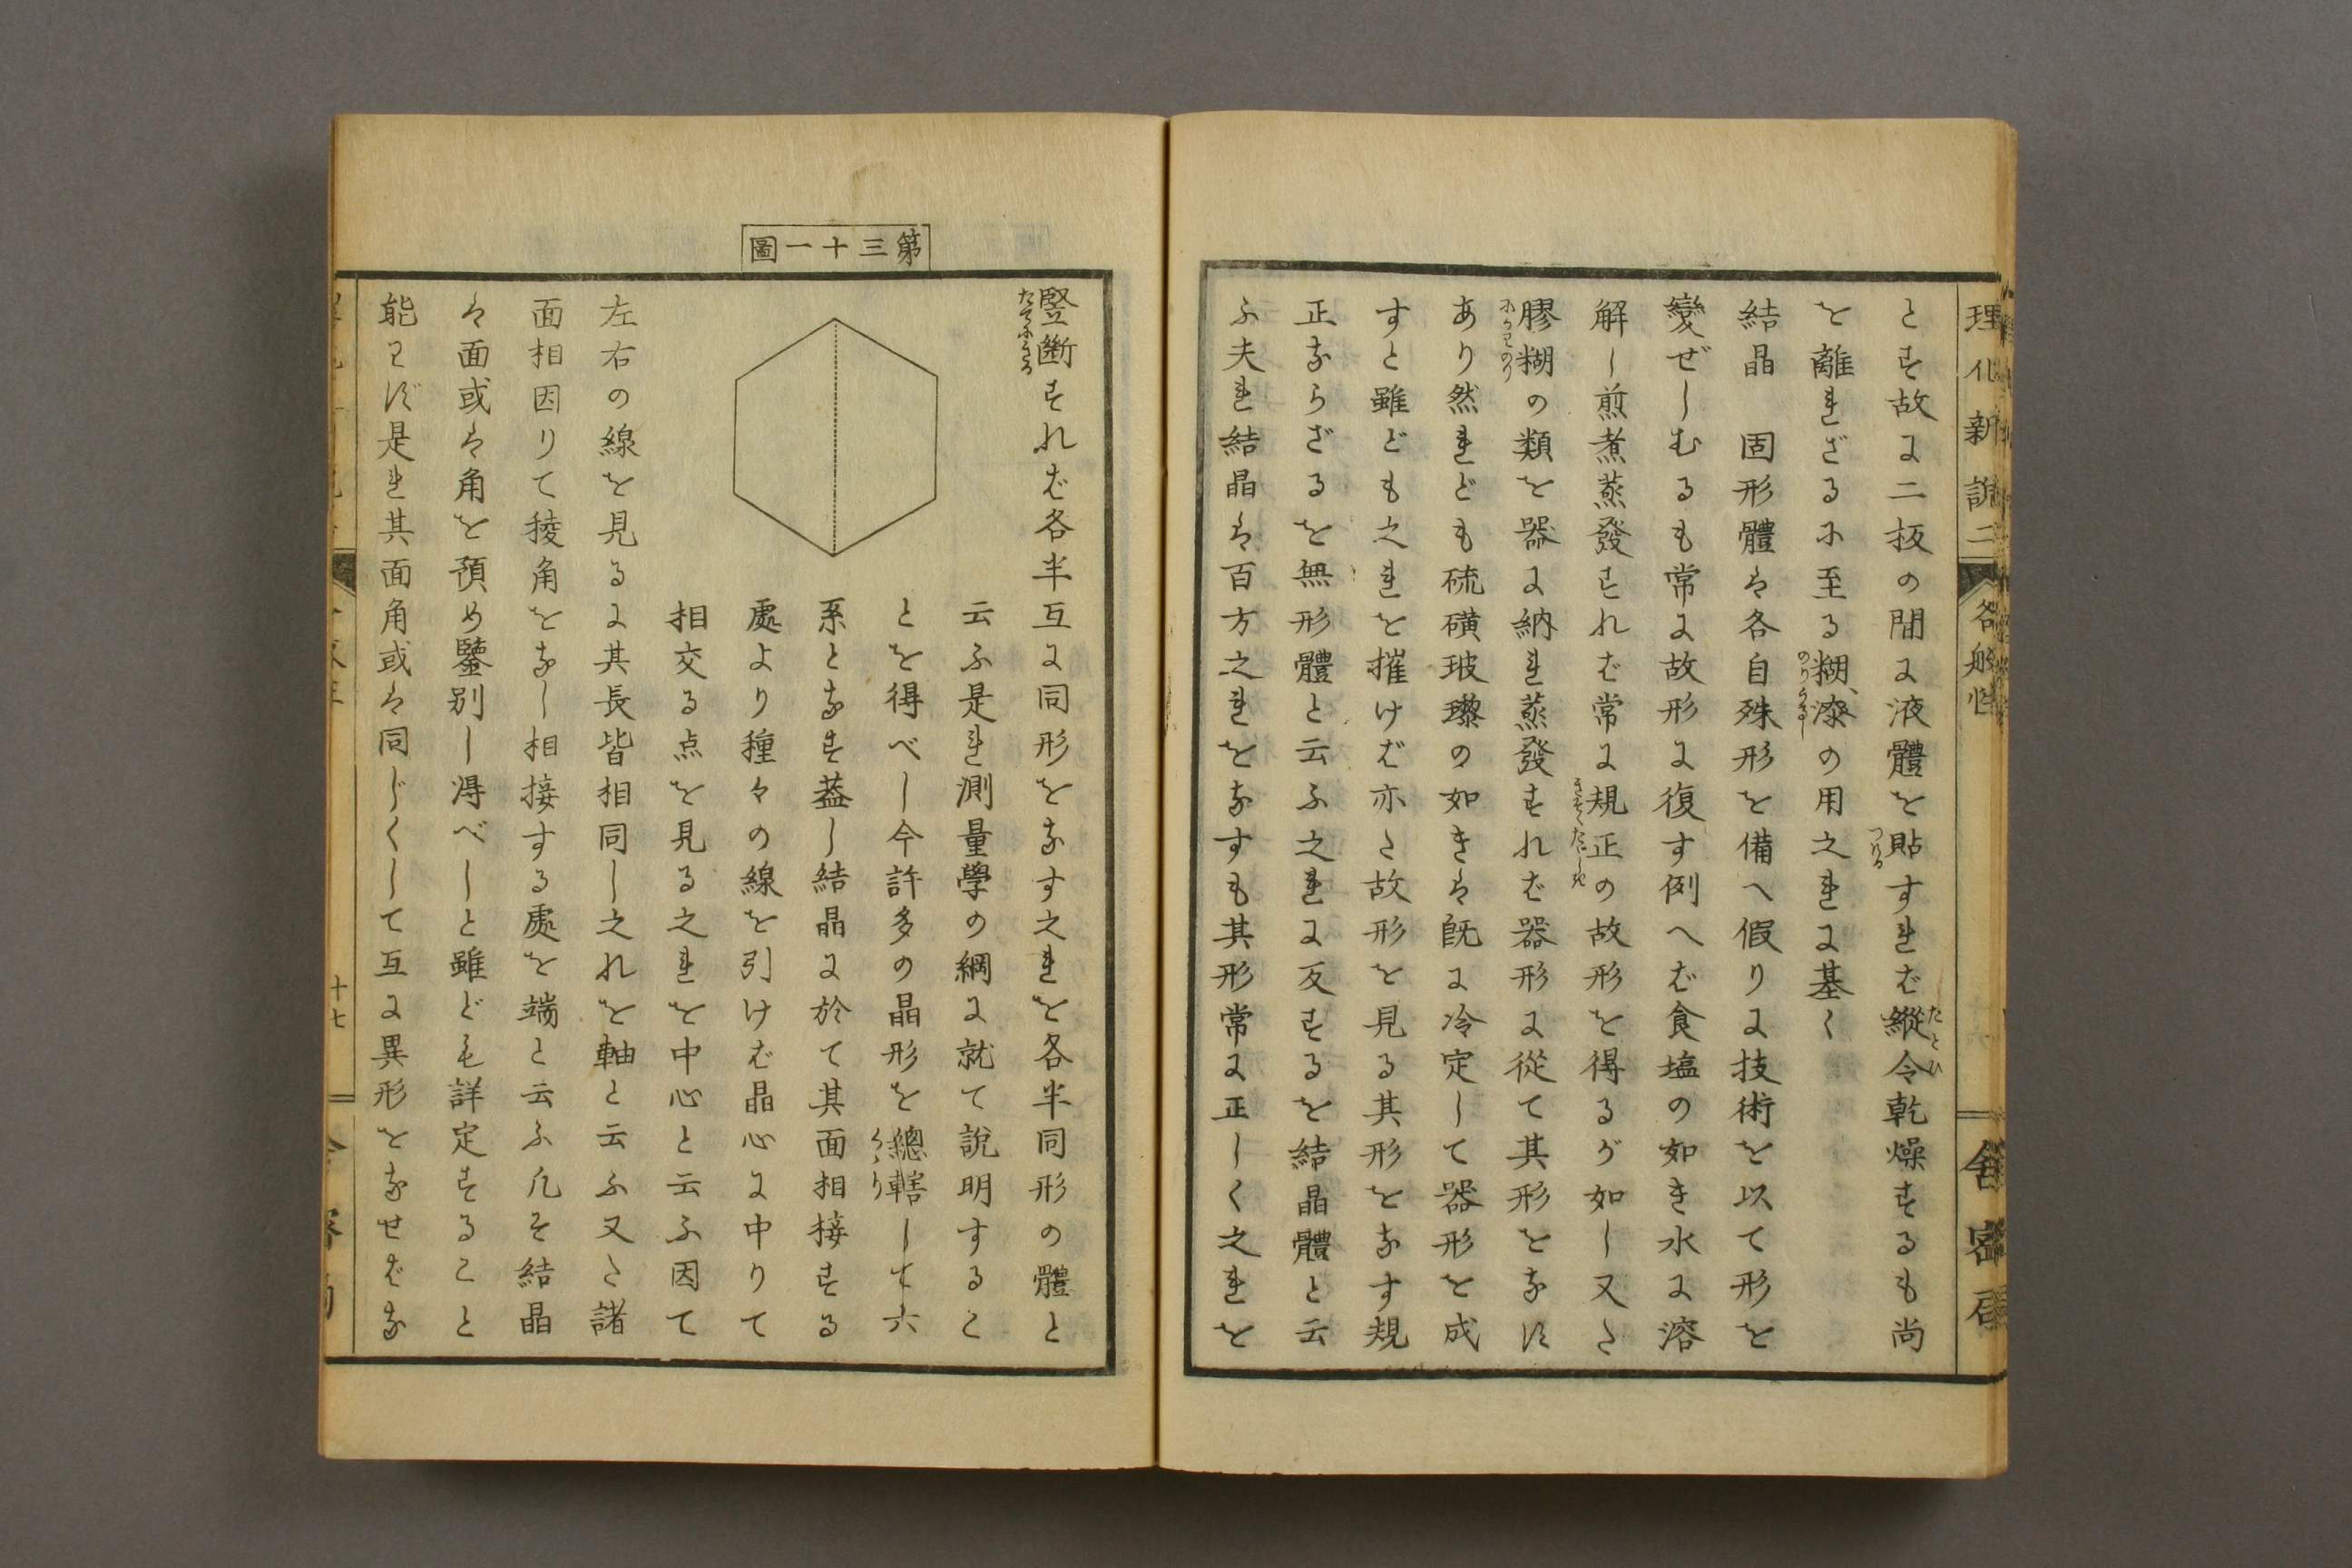 理化新說二 各般性 舎密局
とす故に二板の間に液體を貼すれば縱令乾燥するも尚
つける
たとひ
を離れざるに至る糊、漆の用之れに基く
のりうるし
結晶 固形體は各自殊形を備へ假りに技術を以て形を
變ぜしむるも常に故形に復す例へば食塩の如き水に溶
解し煎煮蒸發すれば常に規正の故形を得るが如し又た
きそくたゞしき
膠糊の類を器に納れ蒸發すれば器形に從て其形をなす
にかわのり
あり然れども硫磺玻瓈の如きは既に冷定して器形を成
すと雖ども之れを摧けば亦た故形を見る其形をなす規
正ならざるを無形體と云ふ之れに反するを結晶體と云
ふ夫れ結晶は百方之れをなすも其形常に正しく之れを
第三十一圖
竪斷すれば各半互に同形をなす之れを各半同形の體と
たてにきる
云ふ是れ測量學の綱に就て說明するこ
とを得べし今許多の晶形を總轄して六
くゝり
系となす蓋し結晶に於て其面相接する
處より種々の線を引けば晶心に中りて
相交る点を見る之れを中心と云ふ因て
左右の線を見るに其長皆相同し之れを軸と云ふ又た諸
面相因りて稜角をなし相接する處を端と云ふ凡そ結晶
は面或は角を預め鑒別し得べしと雖ども詳定すること
能はず是れ其面角或は同じくして互に異形をなせばな
十七